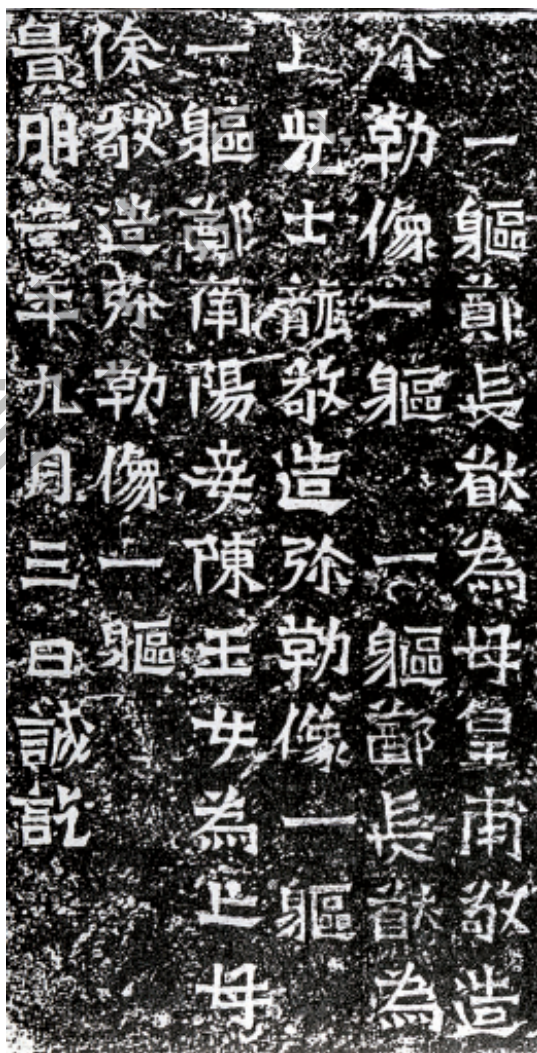 一軀鄭長猷為母皇甫敬造
尒勒像一軀一軀鄭長猷為
亡兒士龍敬造弥勒像一軀
一軀鄭南陽妾陳玉女為亡母
徐敬造弥勒像一軀
景明二年九月三日誡訖